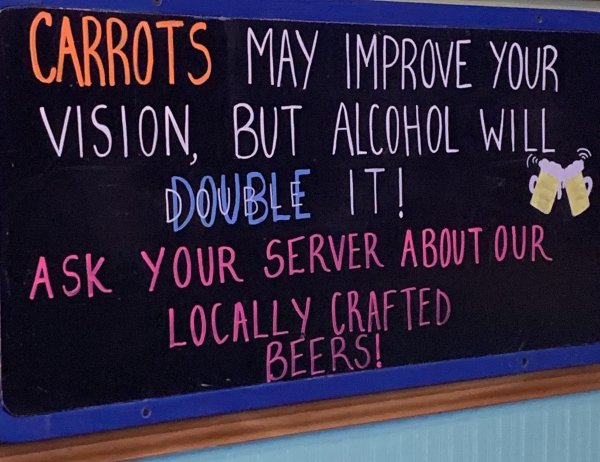 CARROTS MAY IMPROVE YOUR
VISION, BUT ALCOHOL WILL
DOUBLE IT!
ASK YOUR SERVER ABOUT OUR
LOCALLY CRAFTED
BEERS!